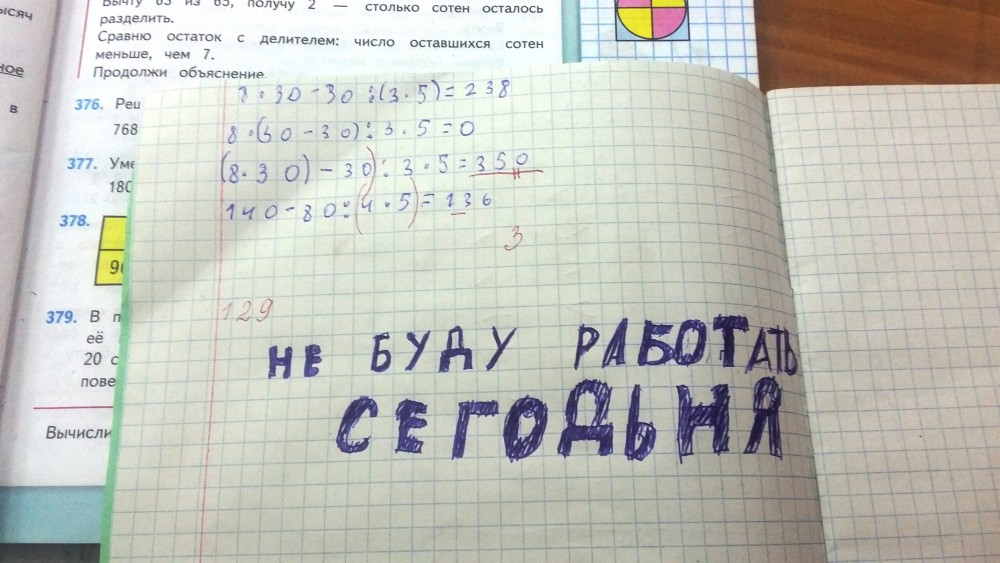 Вычту 63 из 65, получу 2 — столько сотен осталось
разделить.
Сравню остаток с делителем: число оставшихся сотен
меньше, чем 7.
Продолжи объяснение.
в
376.
768
377.
180
378.
379. В
её
20
Вычисли
8·30-30:(3·5)=238
8·(30-30):3·5=0
(8·30)-30):3·5=350
140-80:(4·5)=136
3
129
НЕ БУДУ РАБОТАТЬ
СЕГОДЬНЯ